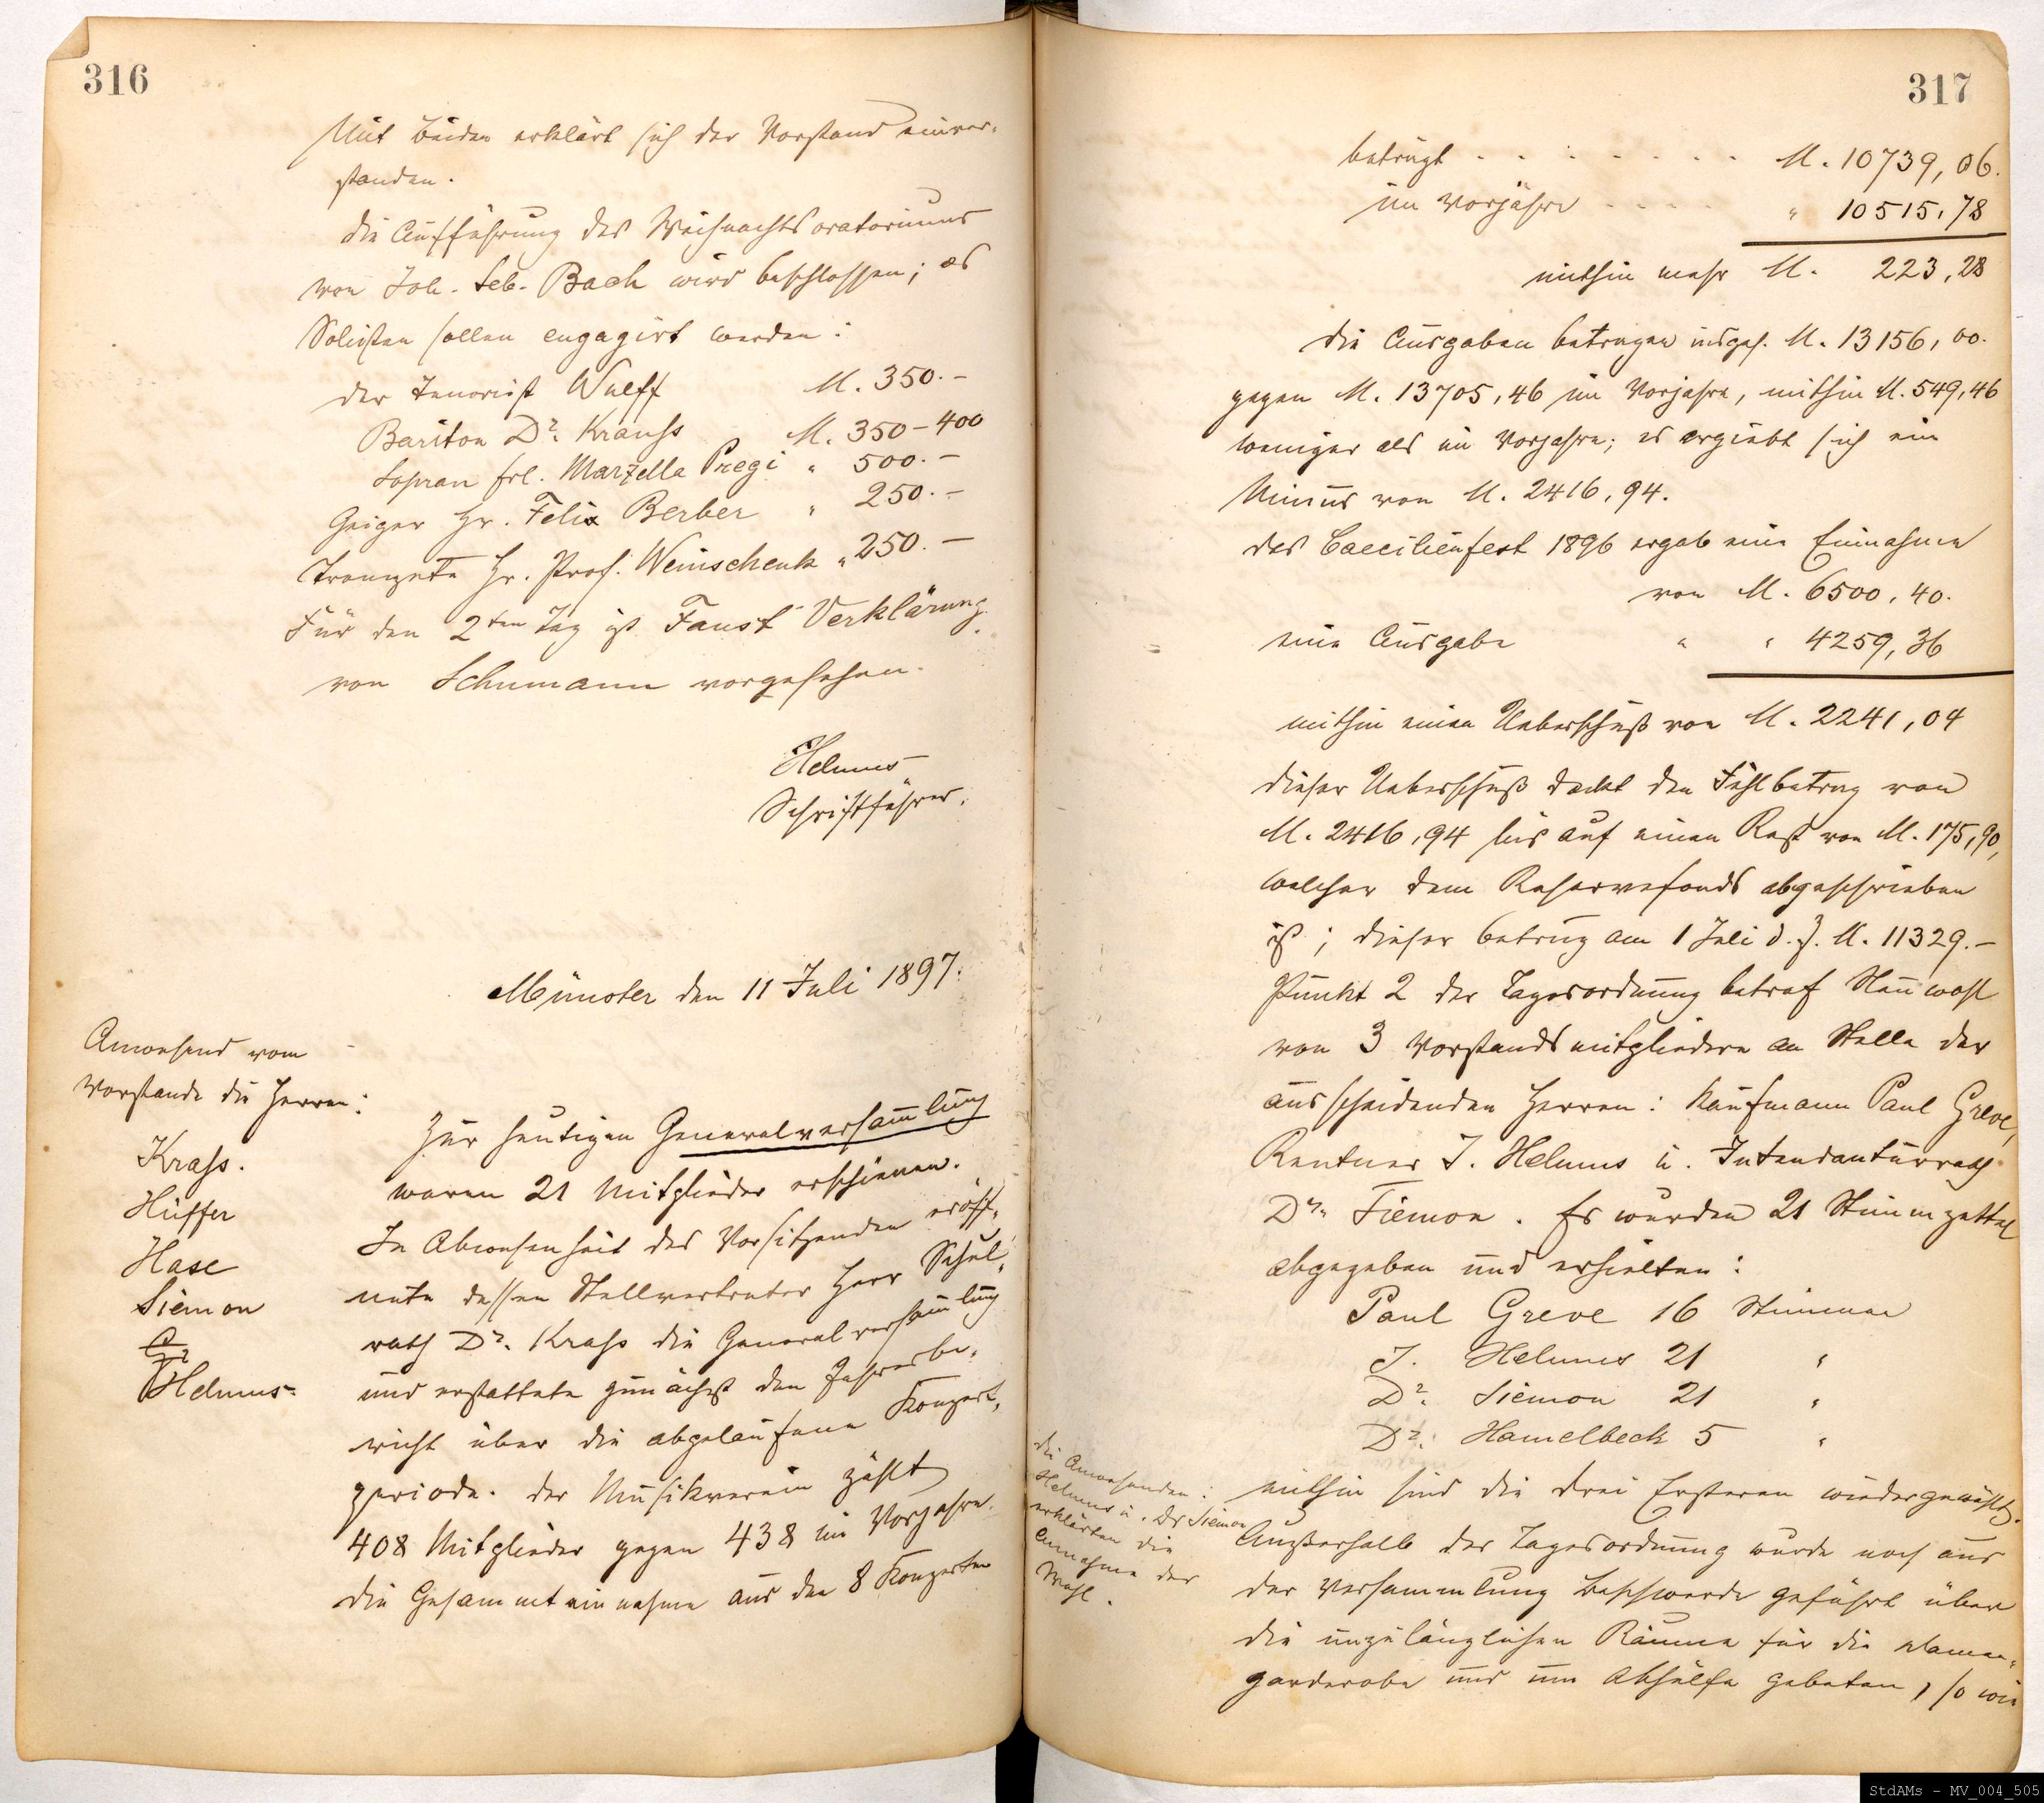 316
Mit beiden erklärt sich der Vorstand einver-
standen.
Die Aufführung des Weihnachtsoratoriums
von Joh. Seb. Bach wird beschlossen; als
Solisten sollen engagirt werden:
der Tenorist Wulff M. 350.-
Bariton Dr. Krauss M. 350-400
Sopran Frl. Marzella Pregi " 500.-
Geiger Hr. Felix Berber " 250.-
Trompete Hr. Prof. Weinschenk " 250.-
Für den 2ten Tag ist Faust Verklärung
von Schumann vorgesehen.
Helmus
Schriftführer.
Münster den 11 Juli 1897.
Anwesend vom
Vorstande die Herren:
Krass.
Hüffer
Hase
Siemon
Helmus.
Zur heutigen Generalversammlung
waren 21 Mitglieder erschienen.
In Abwesenheit des Vorsitzenden eröff-
nete dessen Stellvertreter Herr Schul-
rath Dr. Krass die Generalversammlung
und erstattete zunächst den Jahresbe-
richt über die abgelaufene Konzert-
periode. Der Musikverein zählt
408 Mitglieder gegen 438 im Vorjahre.
Die Gesammteinnahme aus den 8 Konzerten
317
beträgt . . . . . . . . M. 10739,06.
im Vorjahre . . . . " 10515,78
mithin mehr M. 223,28
Die Ausgaben betragen insges. M. 13156,00.
gegen M. 13705,46 im Vorjahre, mithin M. 549,46
weniger als im Vorjahre; es ergiebt sich ein
Minus von M. 2416,94.
Das Caecilienfest 1896 ergab eine Einnahme
von M. 6500,40.
eine Ausgabe " " 4259,36
mithin einen Ueberschuß von M. 2241,04
Dieser Ueberschuß deckt den Fehlbetrag von
M. 2416,94 bis auf einen Rest von M. 175,90,
welcher dem Reservefonds abgeschrieben
ist; dieser betrug am 1 Juli d. J. M. 11329.-
Punkt 2 der Tagesordnung betraf Neuwahl
von 3 Vorstandsmitgliedern an Stelle der
ausscheidenden Herren: Kaufmann Paul Greve,
Rentner J. Helmus u. Intendanturrath
Dr. Siemon. Es wurden 21 Stimmzettel
abgegeben und erhielten:
Paul Greve 16 Stimmen
J. Helmus 21 "
Dr. Siemon 21 "
Dr. Hamelbeck 5 "
mithin sind die drei Ersteren wiedergewählt.
Die Anwesenden:
Helmus u. Dr Siemon
erklärten die
Annahme der
Wahl.
Außerhalb der Tagesordnung wurde noch aus
der Versammlung Beschwerde geführt über
die unzulänglichen Räume für die Damen-
garderobe und um Abhülfe gebeten, so wie
StdAMs - MV_004_505